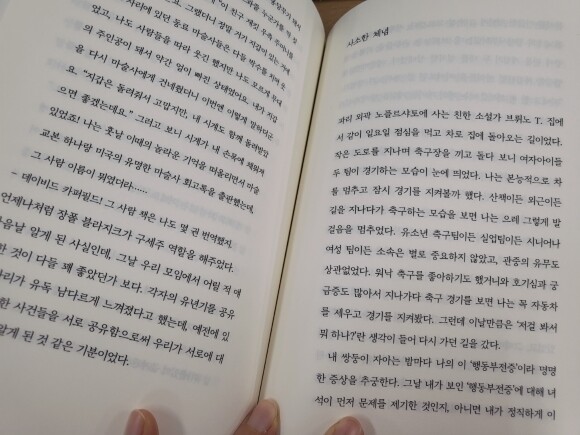 있었던 동료 마술사들은 다들 박수를 치며 웃
었고, 나도 사람들을 따라 웃긴 했지만 나도 모르게 무대
의 주인공이 돼서 약간 얼이 빠진 상태였어요. 내가 지갑
을 다시 마술사에게 건네줬더니 이번엔 이렇게 말하더군
요. "지갑은 돌려줘서 고맙지만, 내 시계도 함께 돌려받았
으면 좋겠는데요." 그러고 보니 시계가 내 손목에 채워져
있었죠! 나는 훗날 이때의 놀라운 기억을 떠올리면서 마술
교본 하나랑 미국의 유명한 마술사 회고록을 출판했는데,
그 사람 이름이 뭐였더라……
- 데이비드 카퍼필드! 그 사람 책은 나도 몇 권 번역했지.
언제나처럼 장폴 블라지크가 구세주 역할을 해주었다.
음날 알게 된 사실인데, 그날 우리 모임에서 어릴 적 얘
한 것이 다들 꽤 좋았던가 보다. 각자의 유년기를 공유
리가 유독 남다르게 느껴졌다고 했는데, 예전에 있
한 사건들을 서로 공유함으로써 우리가 서로에 대
알게 된 것 같은 기분이었다.
사소한 체념
파리 외곽 노플르샤토에 사는 친한 소설가 브뤼노 T. 집에
서 같이 일요일 점심을 먹고 차로 집에 돌아오는 길이었다.
작은 도로를 지나며 축구장을 끼고 돌다 보니 여자아이들
두 팀이 경기하는 모습이 눈에 띄었다. 나는 본능적으로 차
를 멈추고 잠시 경기를 지켜볼까 했다. 산책이든 외근이든
길을 지나다가 축구하는 모습을 보면 나는 으레 그렇게 발
걸음을 멈추었다. 유소년 축구팀이든 실업팀이든 시니어나
여성 팀이든 소속은 별로 중요하지 않았고, 관중의 유무도
상관없었다. 워낙 축구를 좋아하기도 했거니와 호기심과 궁
금증도 많아서 지나가다 축구 경기를 보면 나는 꼭 자동차
를 세우고 경기를 지켜봤다. 그런데 이날만큼은 '저걸 봐서
뭐 하나?'란 생각이 들어 다시 가던 길을 갔다.
내 쌍둥이 자아는 밤마다 나의 이 '행동부전증'이라 명명
한 증상을 추궁한다. 그날 내가 보인 '행동부전증'에 대해 녀
석이 먼저 문제를 제기한 것인지, 아니면 내가 정직하게 이